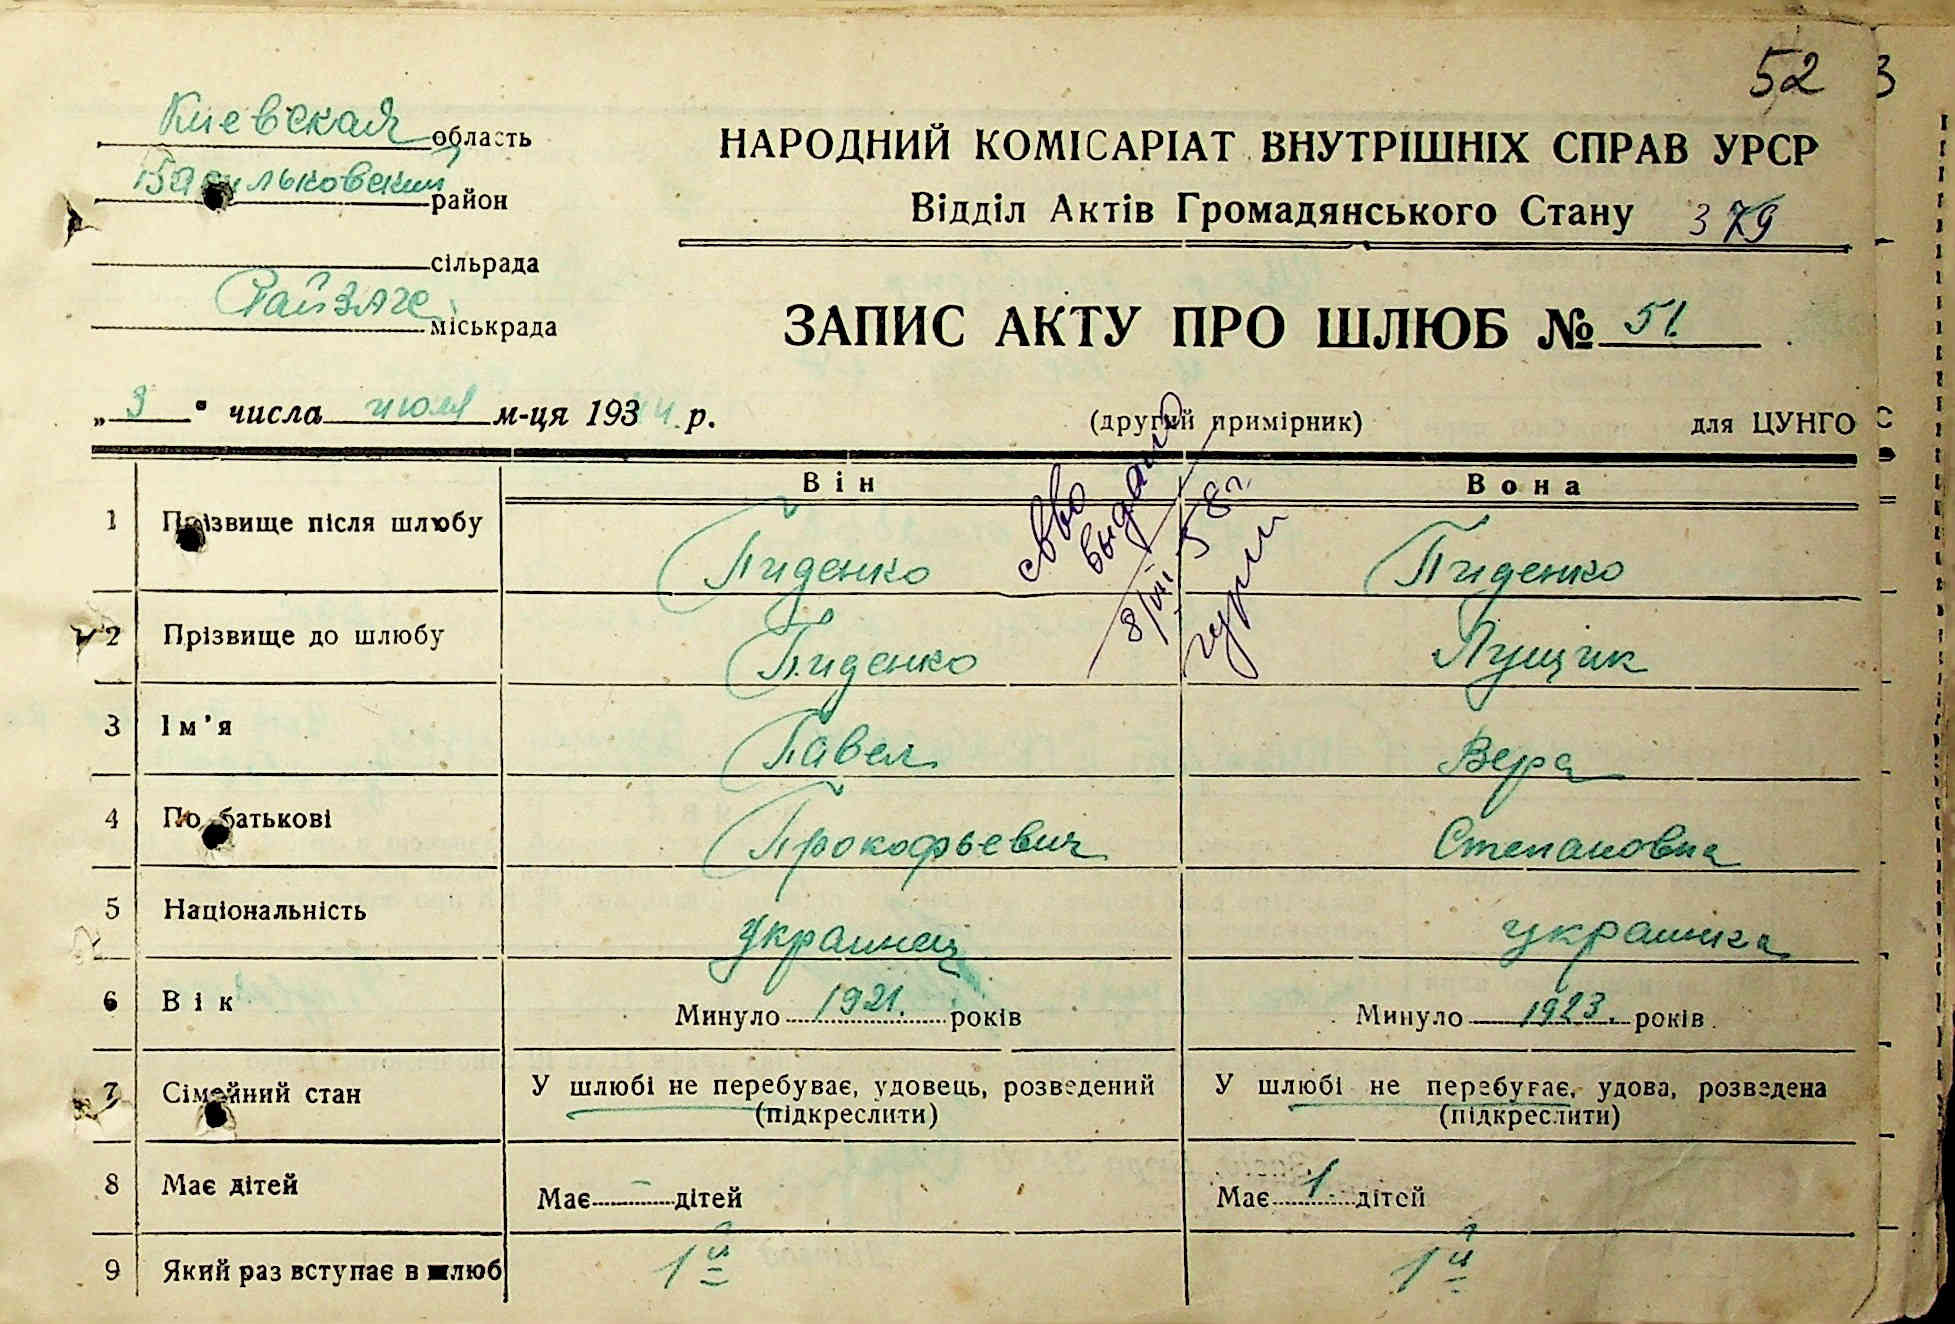 52
Киевская область
Васильковский район
сільрада
РайЗАГС міськрада
НАРОДНИЙ КОМІСАРІАТ ВНУТРІШНІХ СПРАВ УРСР
Відділ Актів Громадянського Стану 379
ЗАПИС АКТУ ПРО ШЛЮБ № 51.
„ 3 " числа июля м-ця 193 44 р.
(другий примірник) для ЦУНГО
Він Вона
1 Прізвище після шлюбу Гиденко Гиденко
2 Прізвище до шлюбу Гиденко Пущик
3 Ім'я Павел Вера
4 По батькові Прокофьевич Степановна
5 Національність украинец украинка
6 Вік Минуло 1921. років Минуло 1923. років
7 Сімейний стан У шлюбі не перебуває, удовець, розведений У шлюбі не перебуває, удова, розведена
(підкреслити) (підкреслити)
8 Має дітей Має - дітей Має 1. дітей
9 Який раз вступає в шлюб 1й 1й
св-во
выдано
8/VII 58г.